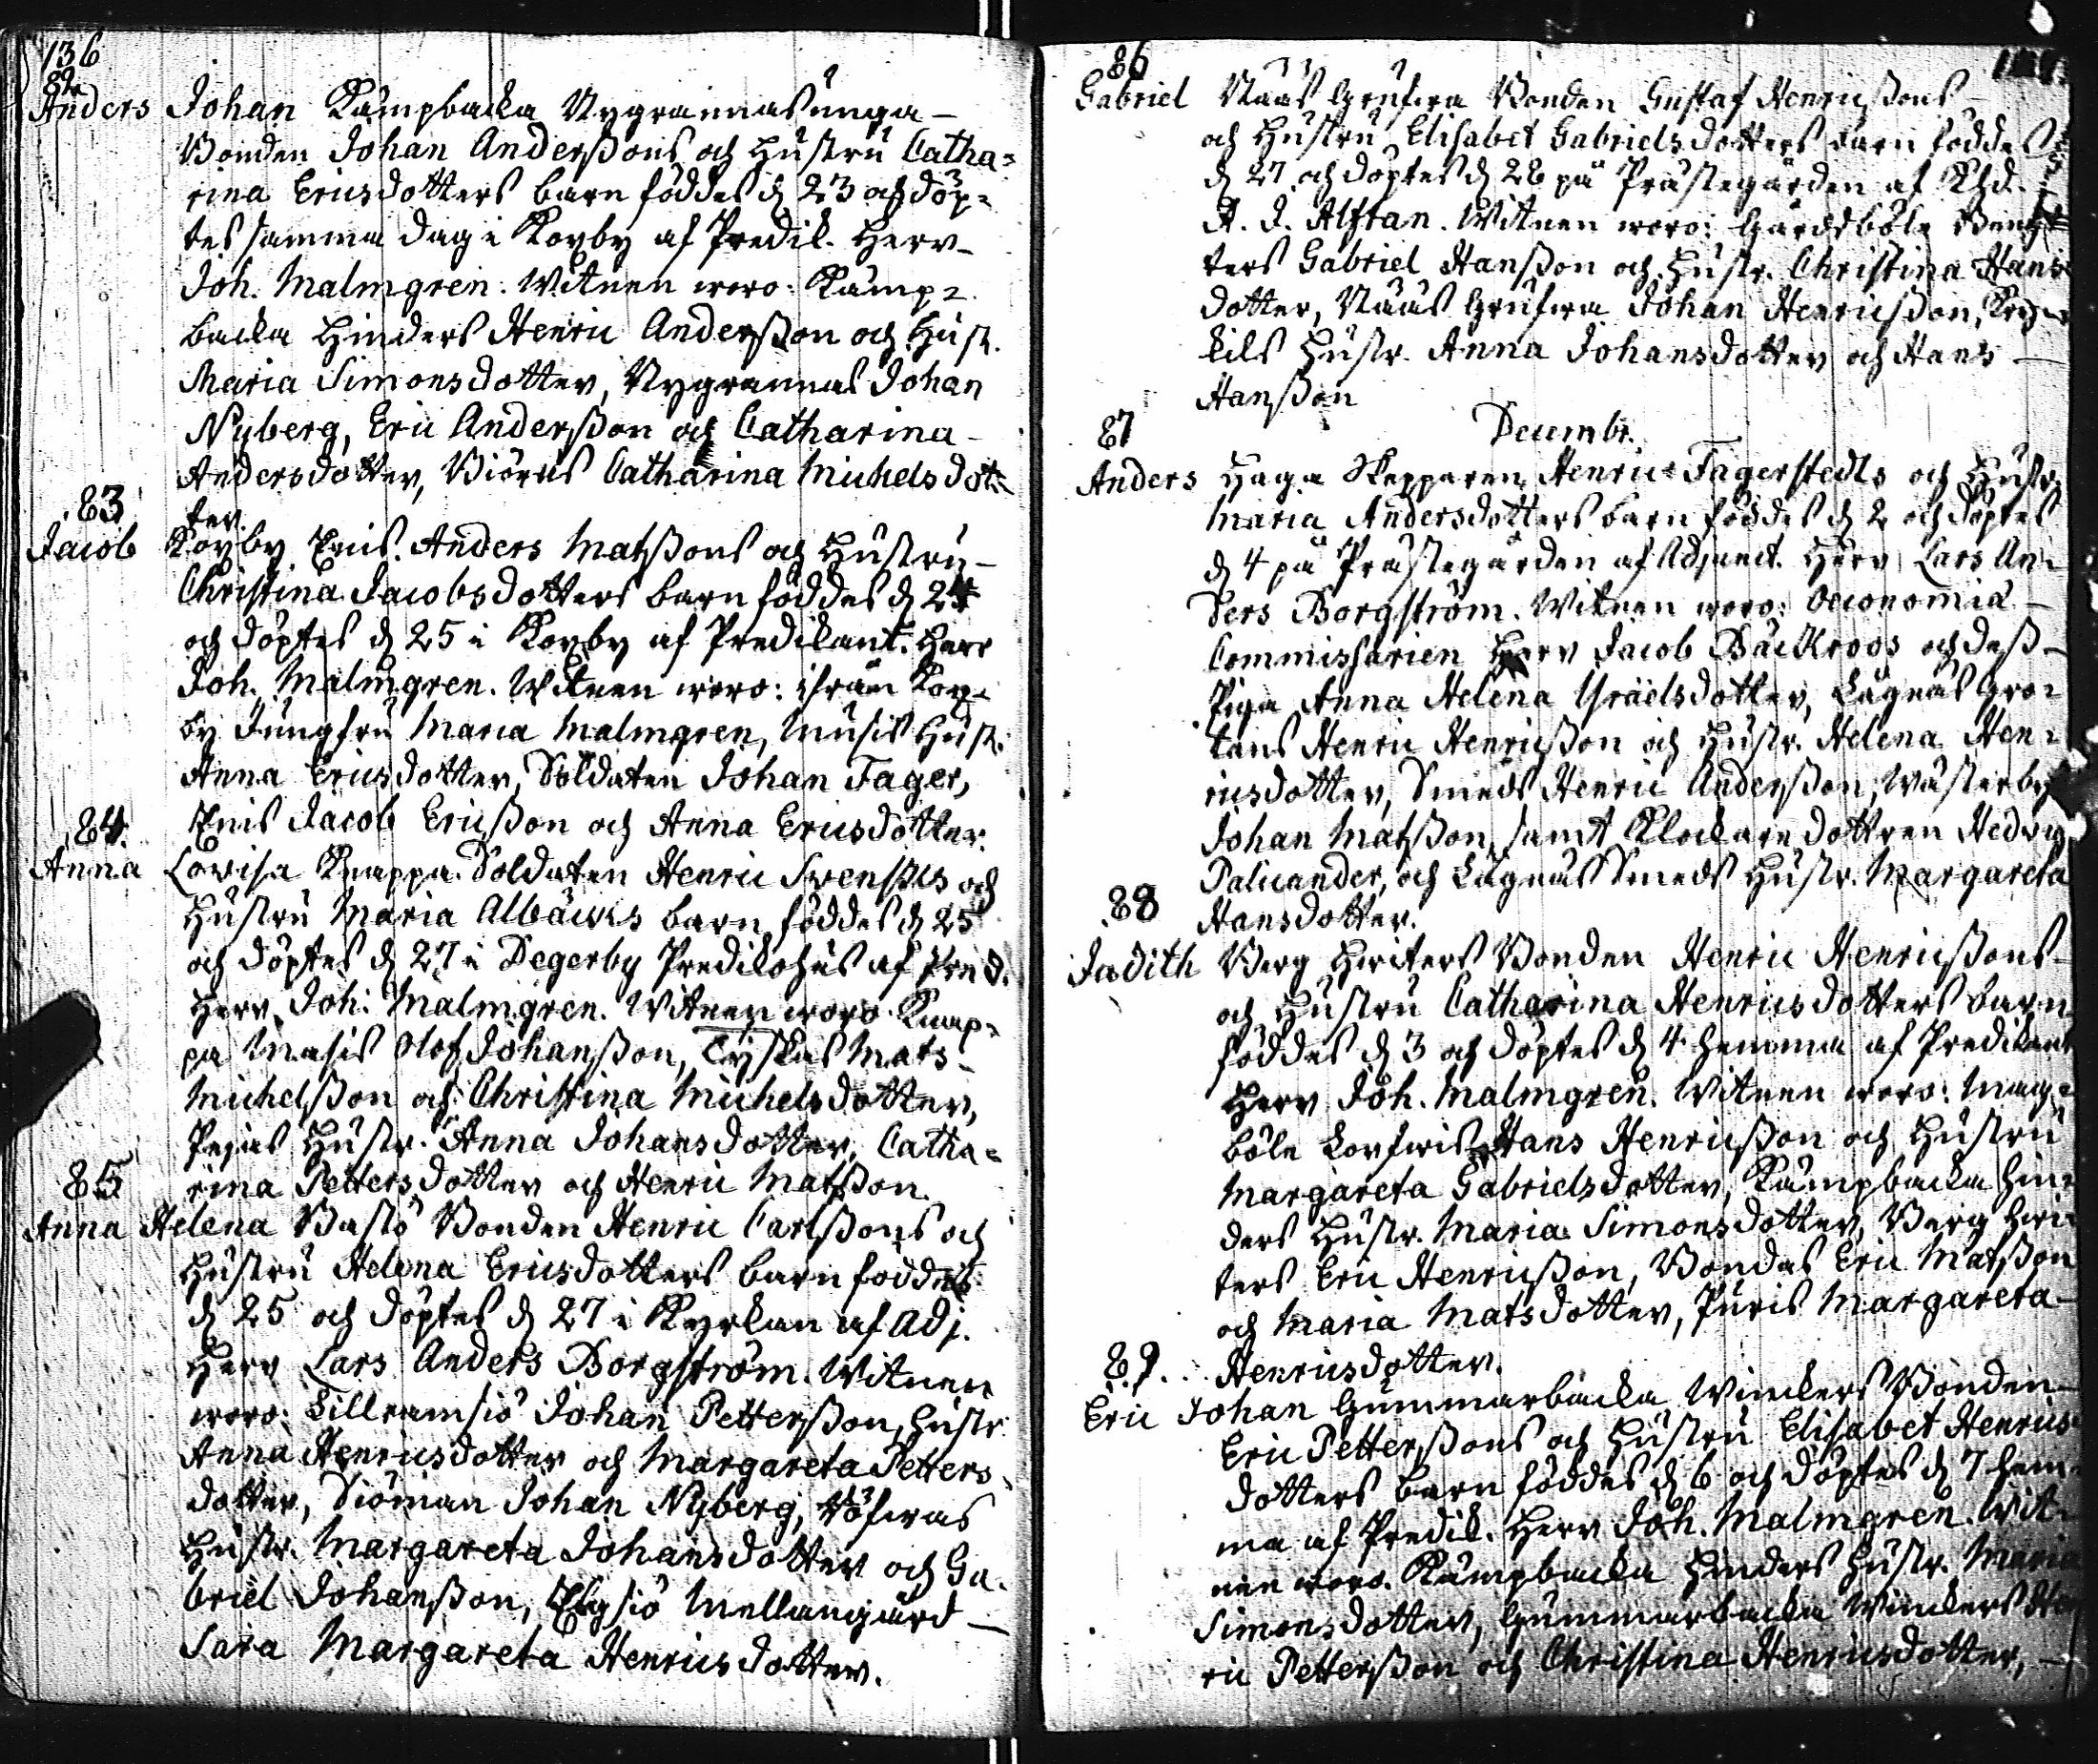 136
82.
Anders Johan Kämpbacka Nygrannas unga
Bonden Johan Anderssons och Hustru Catha=
rina Ericsdotters barn föddes d 23 och döp=
tes samma dag i Kopby af Predik. Herr
Joh. Malmgren. Witnen woro: Kämp=
backa Hinders Henric Andersson och Hust.
Maria Simonsdotter, Nygrannas Johan
Nyberg, Eric Andersson och Catharina
Andersdotter, Biörns Catharina Michelsdot=
ter.
83
Jacob Kopby Enis. Anders Matssons och Hustru
Christina Jacobsdotters barn föddes d 24
och döptes d 25 i Kopby af Predikant. Herr
Joh. Malmgren. Witnen woro: ifrån Kop=
by Jungfru Maria Malmgren, Musis Hust.
Anna Ericsdotter, Soldaten Johan Fager,
Enis Jacob Ericsson och Anna Ericsdotter.
84.
Anna Lovisa Knappa Soldaten Henric Svensks och
Hustru Maria Albäcks barn föddes d 25
och döptes d 27 i Degerby Predikohus af Pred.
Herr Joh. Malmgren. Witnen woro Knap=
pa Masis Olof Johansson, Tyskas Mats
Michelsson och Christina Michelsdotter,
Pejas Hustr. Anna Johansdotter, Catha=
rina Pettersdotter och Henric Matsson.
85
Anna Helena Bastö Bonden Henric Carlssons och
Hustru Helena Ericsdotters barn föddes
d 25 och döptes d 27 i Kyrkan af Adj.
Herr Lars Anders Borgström. Witnen
woro: Lillramsiö Johan Pettersson, Hustr
Anna Henricsdotter och Margareta Petters
dotter, Siöman Johan Nyberg,
Hustr. Margareta Johansdotter och Ga=
briel Johansson, Elgsiö Mellangård
Sara Margareta Henricsdotter.
86
Gabriel Näas Grufwa Bonden Gustaf Henricssons
och Hustru Elisabet Gabrielsdotters barn föddes
d 27 och döptes d 28 på Prästegården af
A. J. Alftan. Witnen woro: Gårdsböle
ters Gabriel Hansson och Hustr. Christina Hans
dotter, Näas Grufwa Johan Henricsson,
kils Hustr. Anna Johansdotter och Hans
Hansson
Decembr.
87
Anders Haga Skepparen Henric Fagerstedts och Hustr.
Maria Andersdotters barn föddes d 2 och döptes
d 4 på Prästegården af Adjunct. Herr Lars An=
ders Borgström. Witnen woro: Oeconomiæ
Commissarien Herr Jacob Backroos och dess
Piga Anna Helena Israëlsdotter, Lågnäs Gro=
tans Henric Henricsson och Hustr. Helena Hen=
ricsdotter, Smeds Henric Andersson, Wästerby
Johan Matsson, samt Klockare dottren Hedvig
Palicander, och Lågnäs Smeds Hustr. Margareta
Hansdotter.
88
Judith Berg Hwiters Bonden Henric Henricssons
och Hustru Catharina Henricsdotters barn
föddes d 3 och döptes d 4 hemma af Predikant
Herr Joh. Malmgren. Witnen woro: Mag=
böle Hans Henricsson och Hustru
Margareta Gabrielsdotter, Kämpbacka Hin=
ders Hustr. Maria Simonsdotter, Berg Hwi=
ters Eric Henricsson, Bondas Eric Matsson
och Maria Matsdotter, Puris Margareta
Henricsdotter.
89.
Eric Johan Gummarbacka Winckers Bonden
Eric Petterssons och Hustru Elisabet Henrics
dotters barn föddes d 6 och döptes d 7 hem=
ma af Predik. Herr Joh. Malmgren. Wit=
nen woro. Kämpbacka Hinders Hustr. Maria
Simonsdotter, Gummarbacka Winckers Hen
ric Pettersson och Christina Henricsdotter,